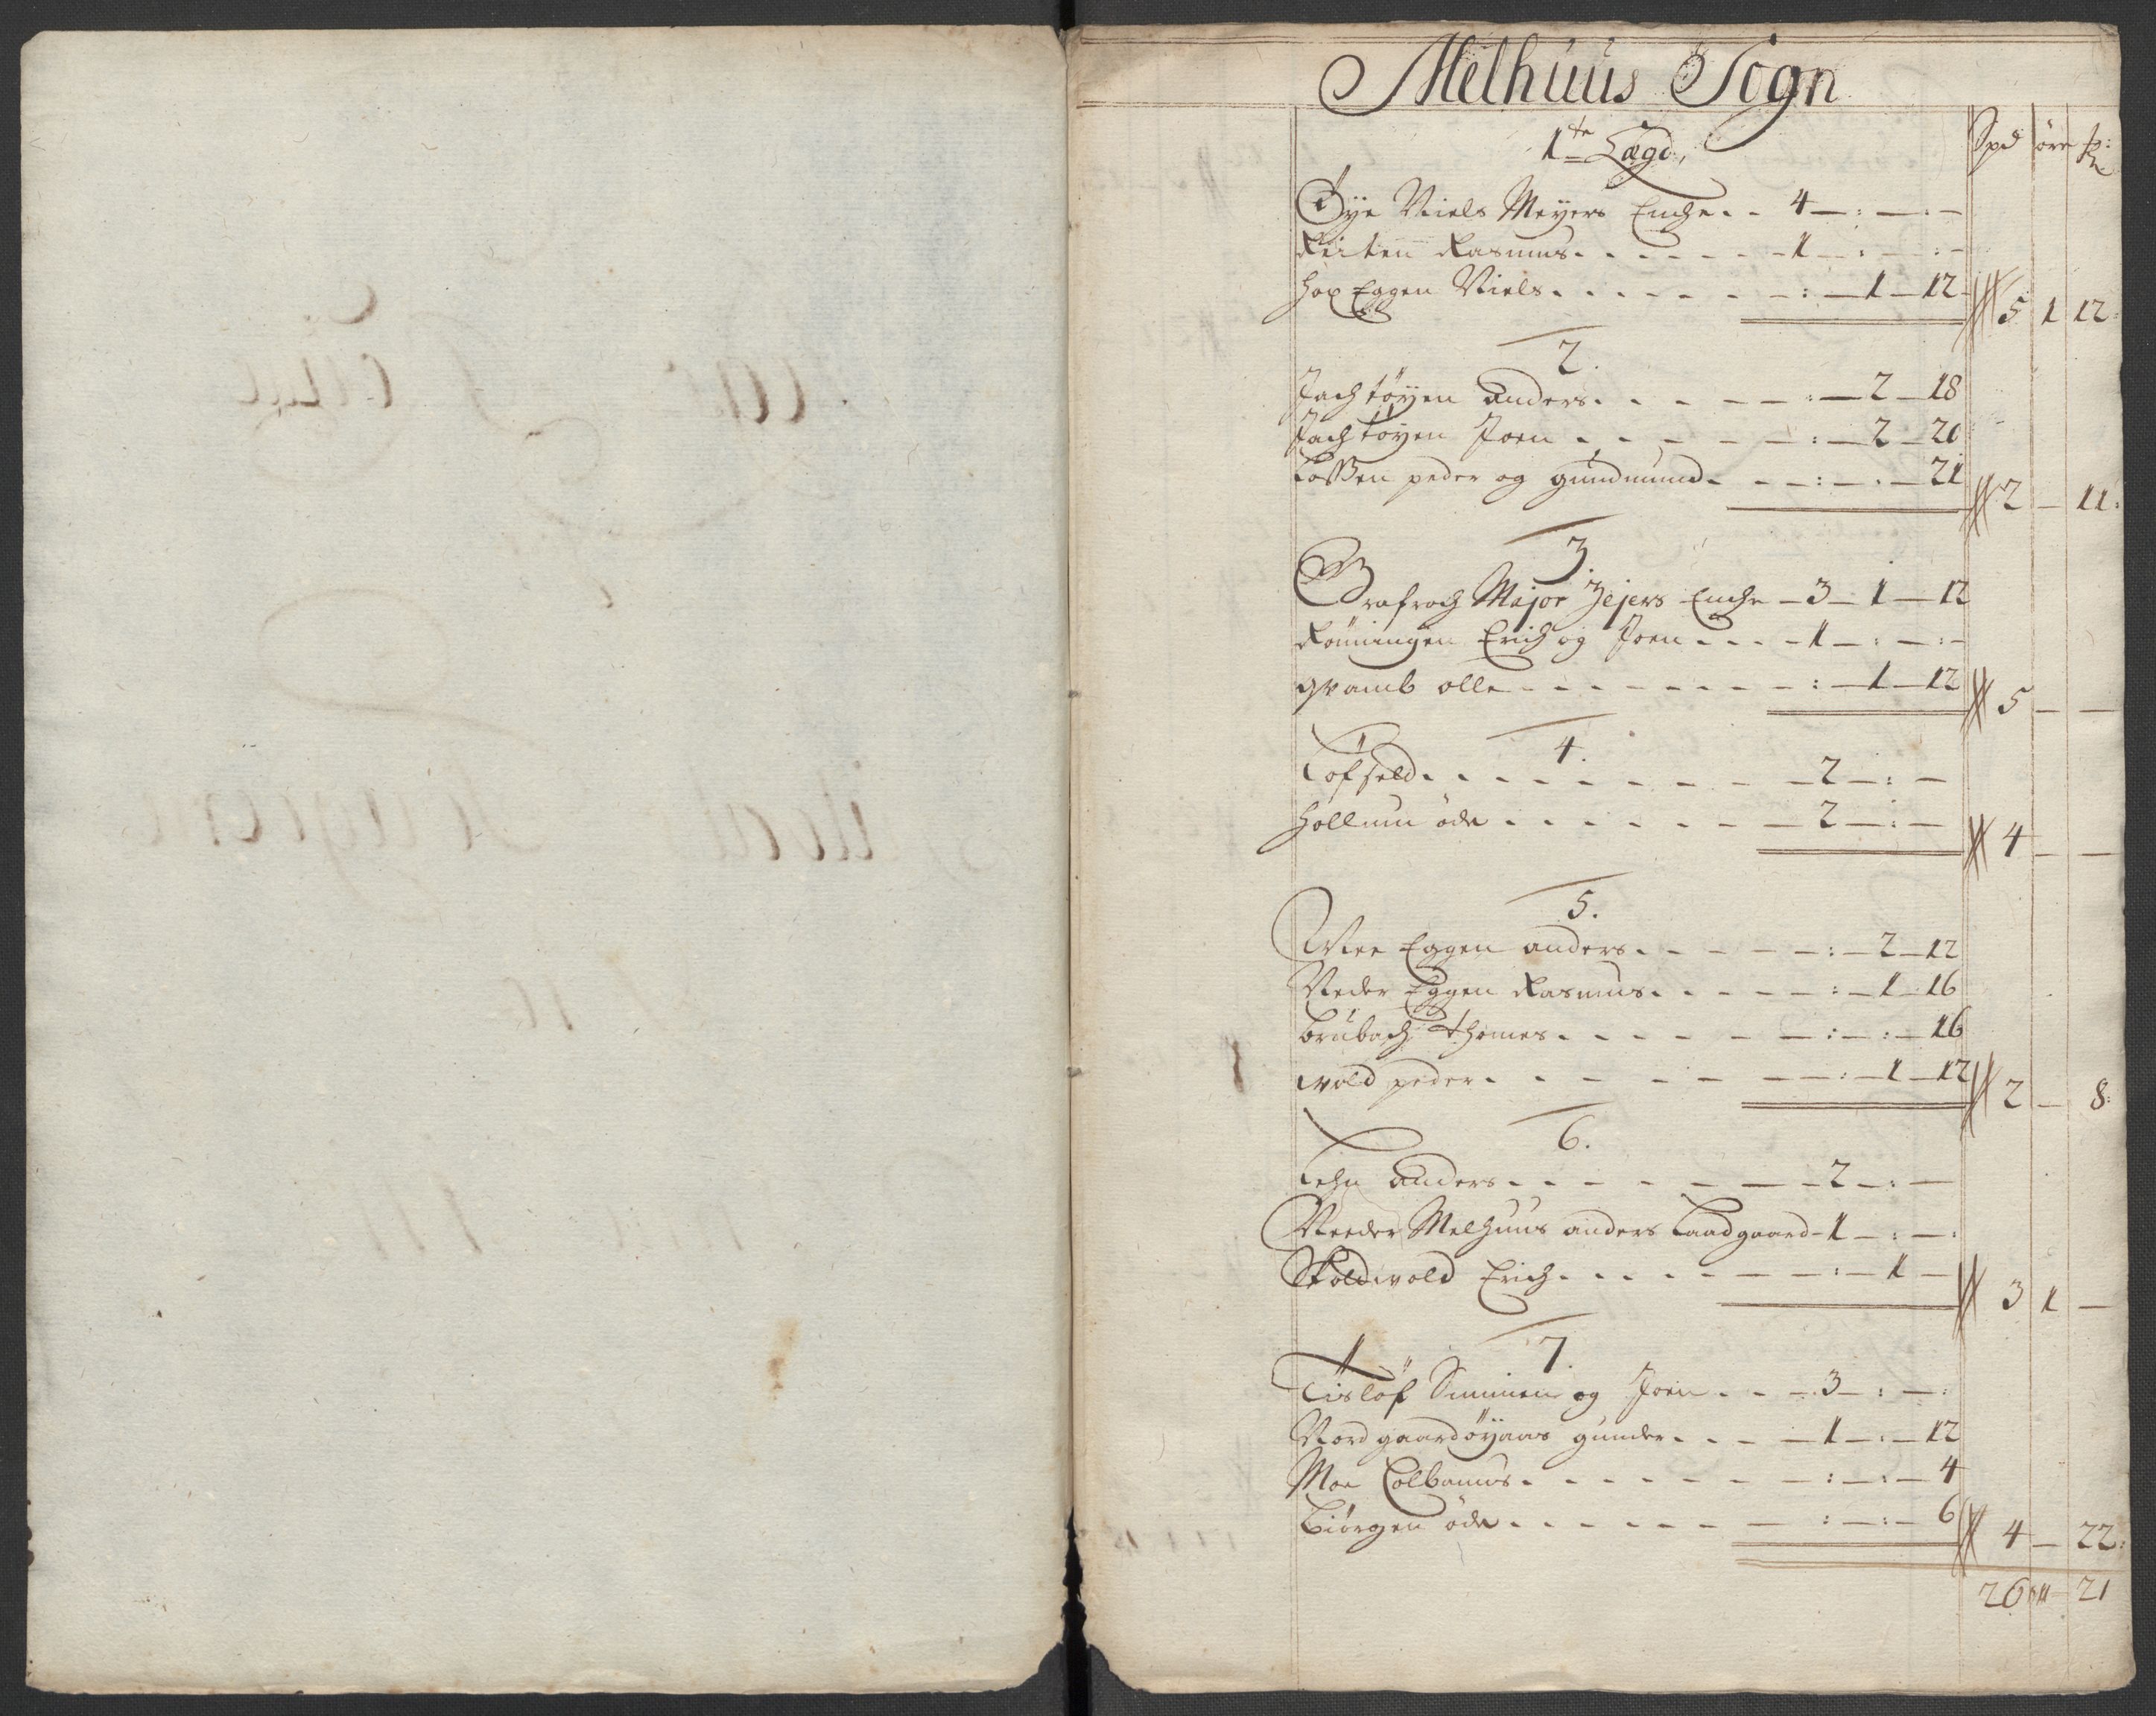 Melhuus Sogn
1te Lægd,
Spd öre
Øye Niels Meyers Enche - - 4 - : - : -
Reiten Rasmus - - - - - - 1 - : - : -
Hop Eggen Niels - - - - - : - 1 - 12
5 1 12
2.
Jachtøyen Anders - - - - - : - 2 - 18
Jachtøyen Joen - - - - - : - 2 - 20
Loßen peder og gundmund - - - : - . - 21
2 - 11
3.
Major Jejers Enche - 3 - 1 - 12
Rønningen Erich og Joen - - - - 1 - : - : -
qvamb olle - - - - - - - : - 1 - 12
5 - -
4.
Løfseld - - - - - - - - 2 - : -
Hollum øde - - - - - - - 2 - : -
4 - -
5.
Øvre Eggen anders - - - - - : - 2 - 12
Neder Eggen Rasmus - - - - - : - 1 - 16
Brubach Thomes - - - - - - : - : - 16
wold peder - - - - - - - : - 1 - 12
2 - 8
6.
Lehn Anders - - - - - - - 2 - : -
Neder Melhuus anders Laadgaard - 1 - : - :
Skoldwold Erich - - - - - - - : - 1 -
3 1 -
7.
Tisløf Simmen og Joen - - - 3 - : - :
Nordgaardøyaas gunder - - - - 1 - : - 12
Moe Colbanus - - - - - - - : - : - 4
Biørgen øde - - - - - - - : - : - 6
4 - 22
26 " 21